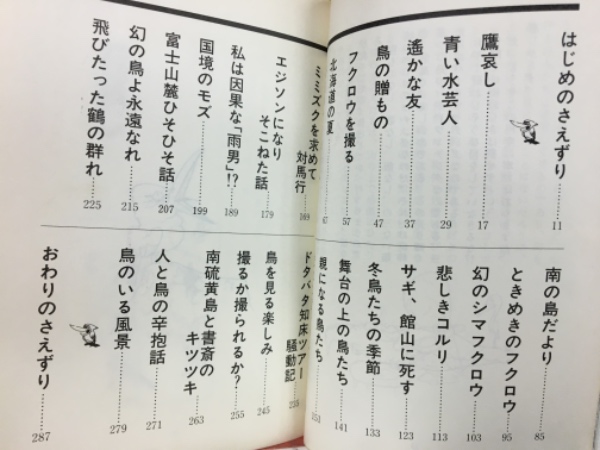 はじめのさえずり……11
鷹哀し……17
青い水芸人……29
遙かな友……37
鳥の贈もの……47
フクロウを撮る……57
北海道の夏……67
南の島だより……85
ときめきのフクロウ……95
幻のシマフクロウ……103
悲しきコルリ……113
サギ、館山に死す……123
冬鳥たちの季節……133
舞台の上の鳥たち……141
親になる鳥たち……151
ミミズクを求めて
対馬行……169
エジソンになり
そこねた話……179
私は因果な「雨男」!?……189
国境のモズ……199
富士山麓ひそひそ話……207
幻の鳥よ永遠なれ……215
飛びたった鶴の群れ……225
ドタバタ知床ツアー
騒動記……
鳥を見る楽しみ……245
撮るか撮られるか?……255
南硫黄島と書斎の
キツツキ……263
人と鳥の辛抱話……271
鳥のいる風景……279
おわりのさえずり……287